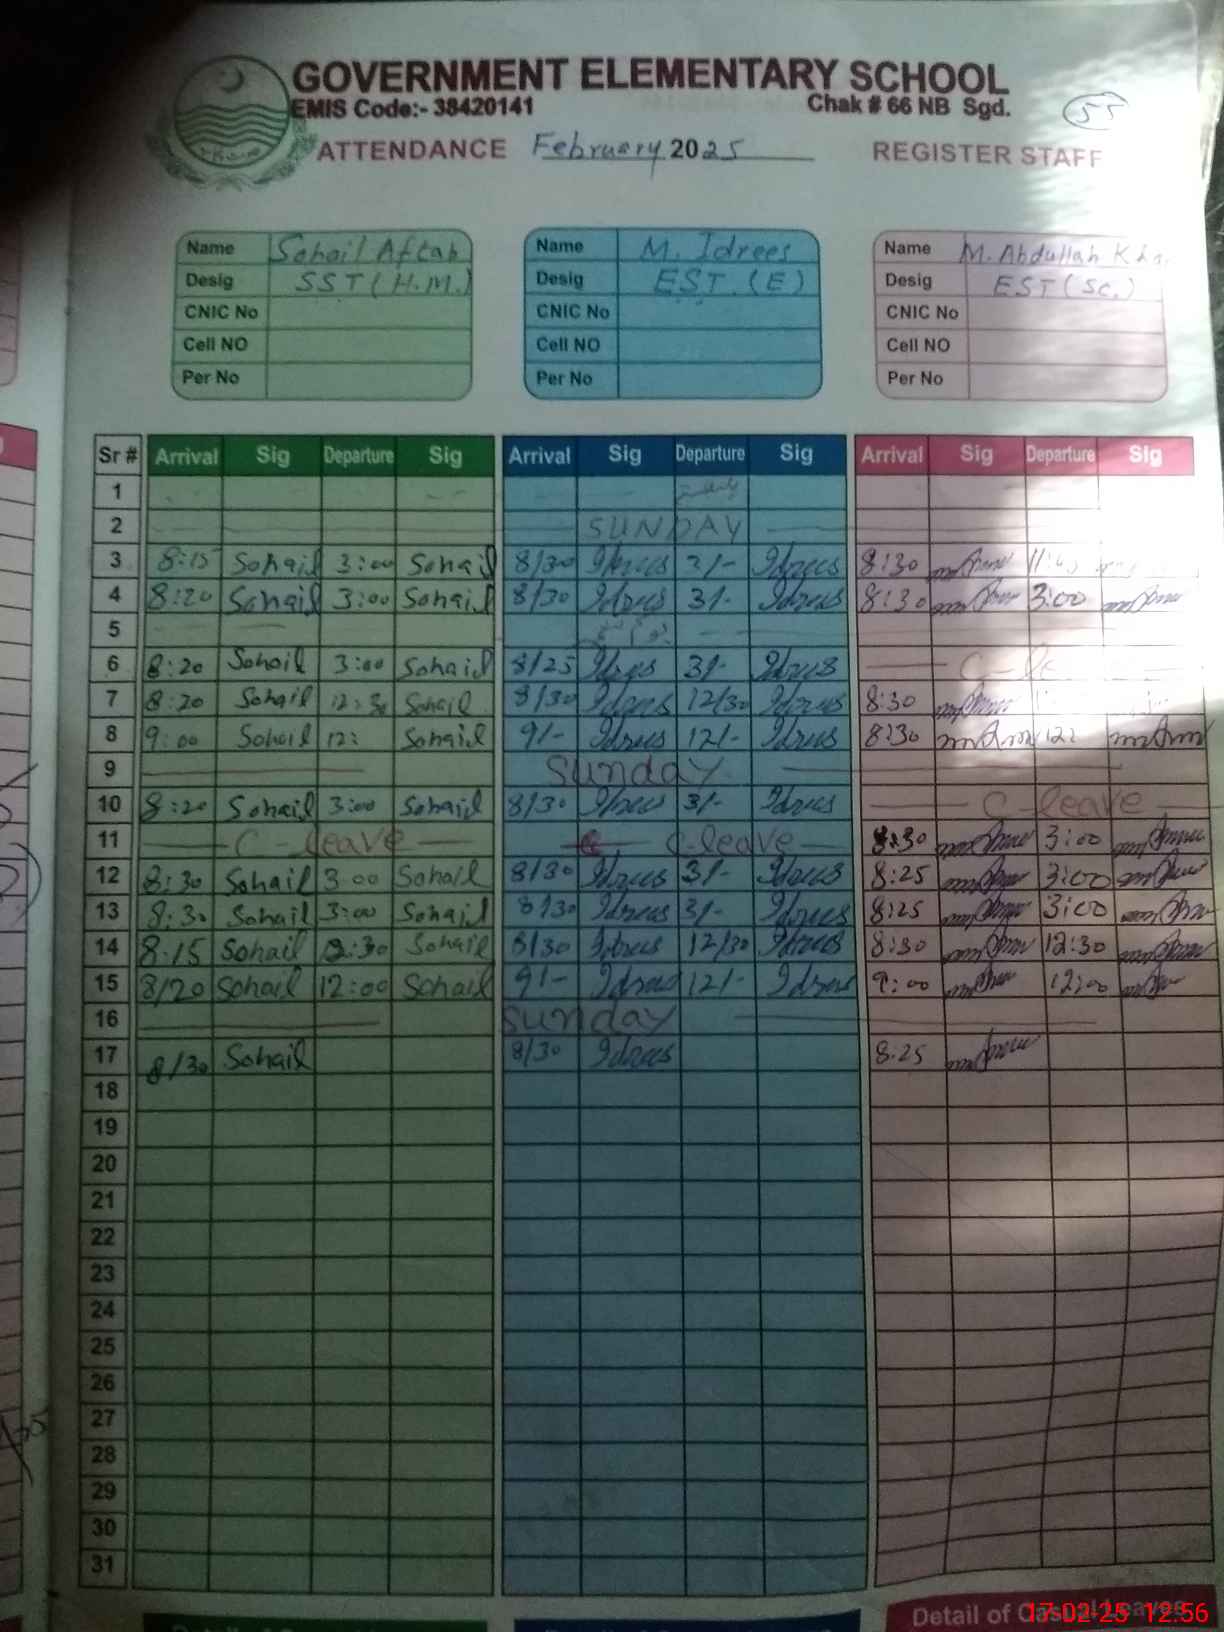 GOVERNMENT ELEMENTARY SCHOOL
EMIS Code:- 38420141 Chak # 66 NB Sgd. 55
ATTENDANCE February 2025 REGISTER STAFF
Name Sohail Aftab Name M. Idrees Name M. Abdullah
Desig SST (H.M.) Desig EST. (E) Desig EST (SC.)
CNIC No CNIC No CNIC No
Cell NO Cell NO Cell NO
Per No Per No Per No
Sr # Arrival Sig Departure Sig Arrival Sig Departure Sig Arrival Sig Departure Sig
1
2 SUNDAY
3 8:15 Sohail 3:00 Sohail 8/30 Idrees 3/- Idrees 8:30
4 8:20 Sohail 3:00 Sohail 8/30 Idrees 3/- Idrees 8:30 3:00
5
6 8:20 Sohail 3:00 Sohail 8/25 Idrees 3/- Idrees C-leave
7 8:20 Sohail 12:30 Sohail 8/30 Idrees 12/30 Idrees 8:30
8 9:00 Sohail 12: Sohail 9/- Idrees 12/- Idrees 8:30 12:
9 Sunday
10 8:20 Sohail 3:00 Sohail 8/30 Idrees 3/- Idrees C-leave
11 C-leave C-leave 8:30 3:00
12 8:30 Sohail 3:00 Sohail 8/30 Idrees 3/- Idrees 8:25 3:00
13 8:30 Sohail 3:00 Sohail 8/30 Idrees 3/- Idrees 8:25 3:00
14 8:15 Sohail Sohail 8/30 Idrees 12/30 Idrees 8:30 12:30
15 8/20 Sohail 12:00 Sohail 9/- Idrees 12/- Idrees 9:00 12:00
16 Sunday
17 8/30 Sohail 8/30 Idrees 8:25
18
19
20
21
22
23
24
25
26
27
28
29
30
31
Detail of Casual Leaves
17-02-25 12:56